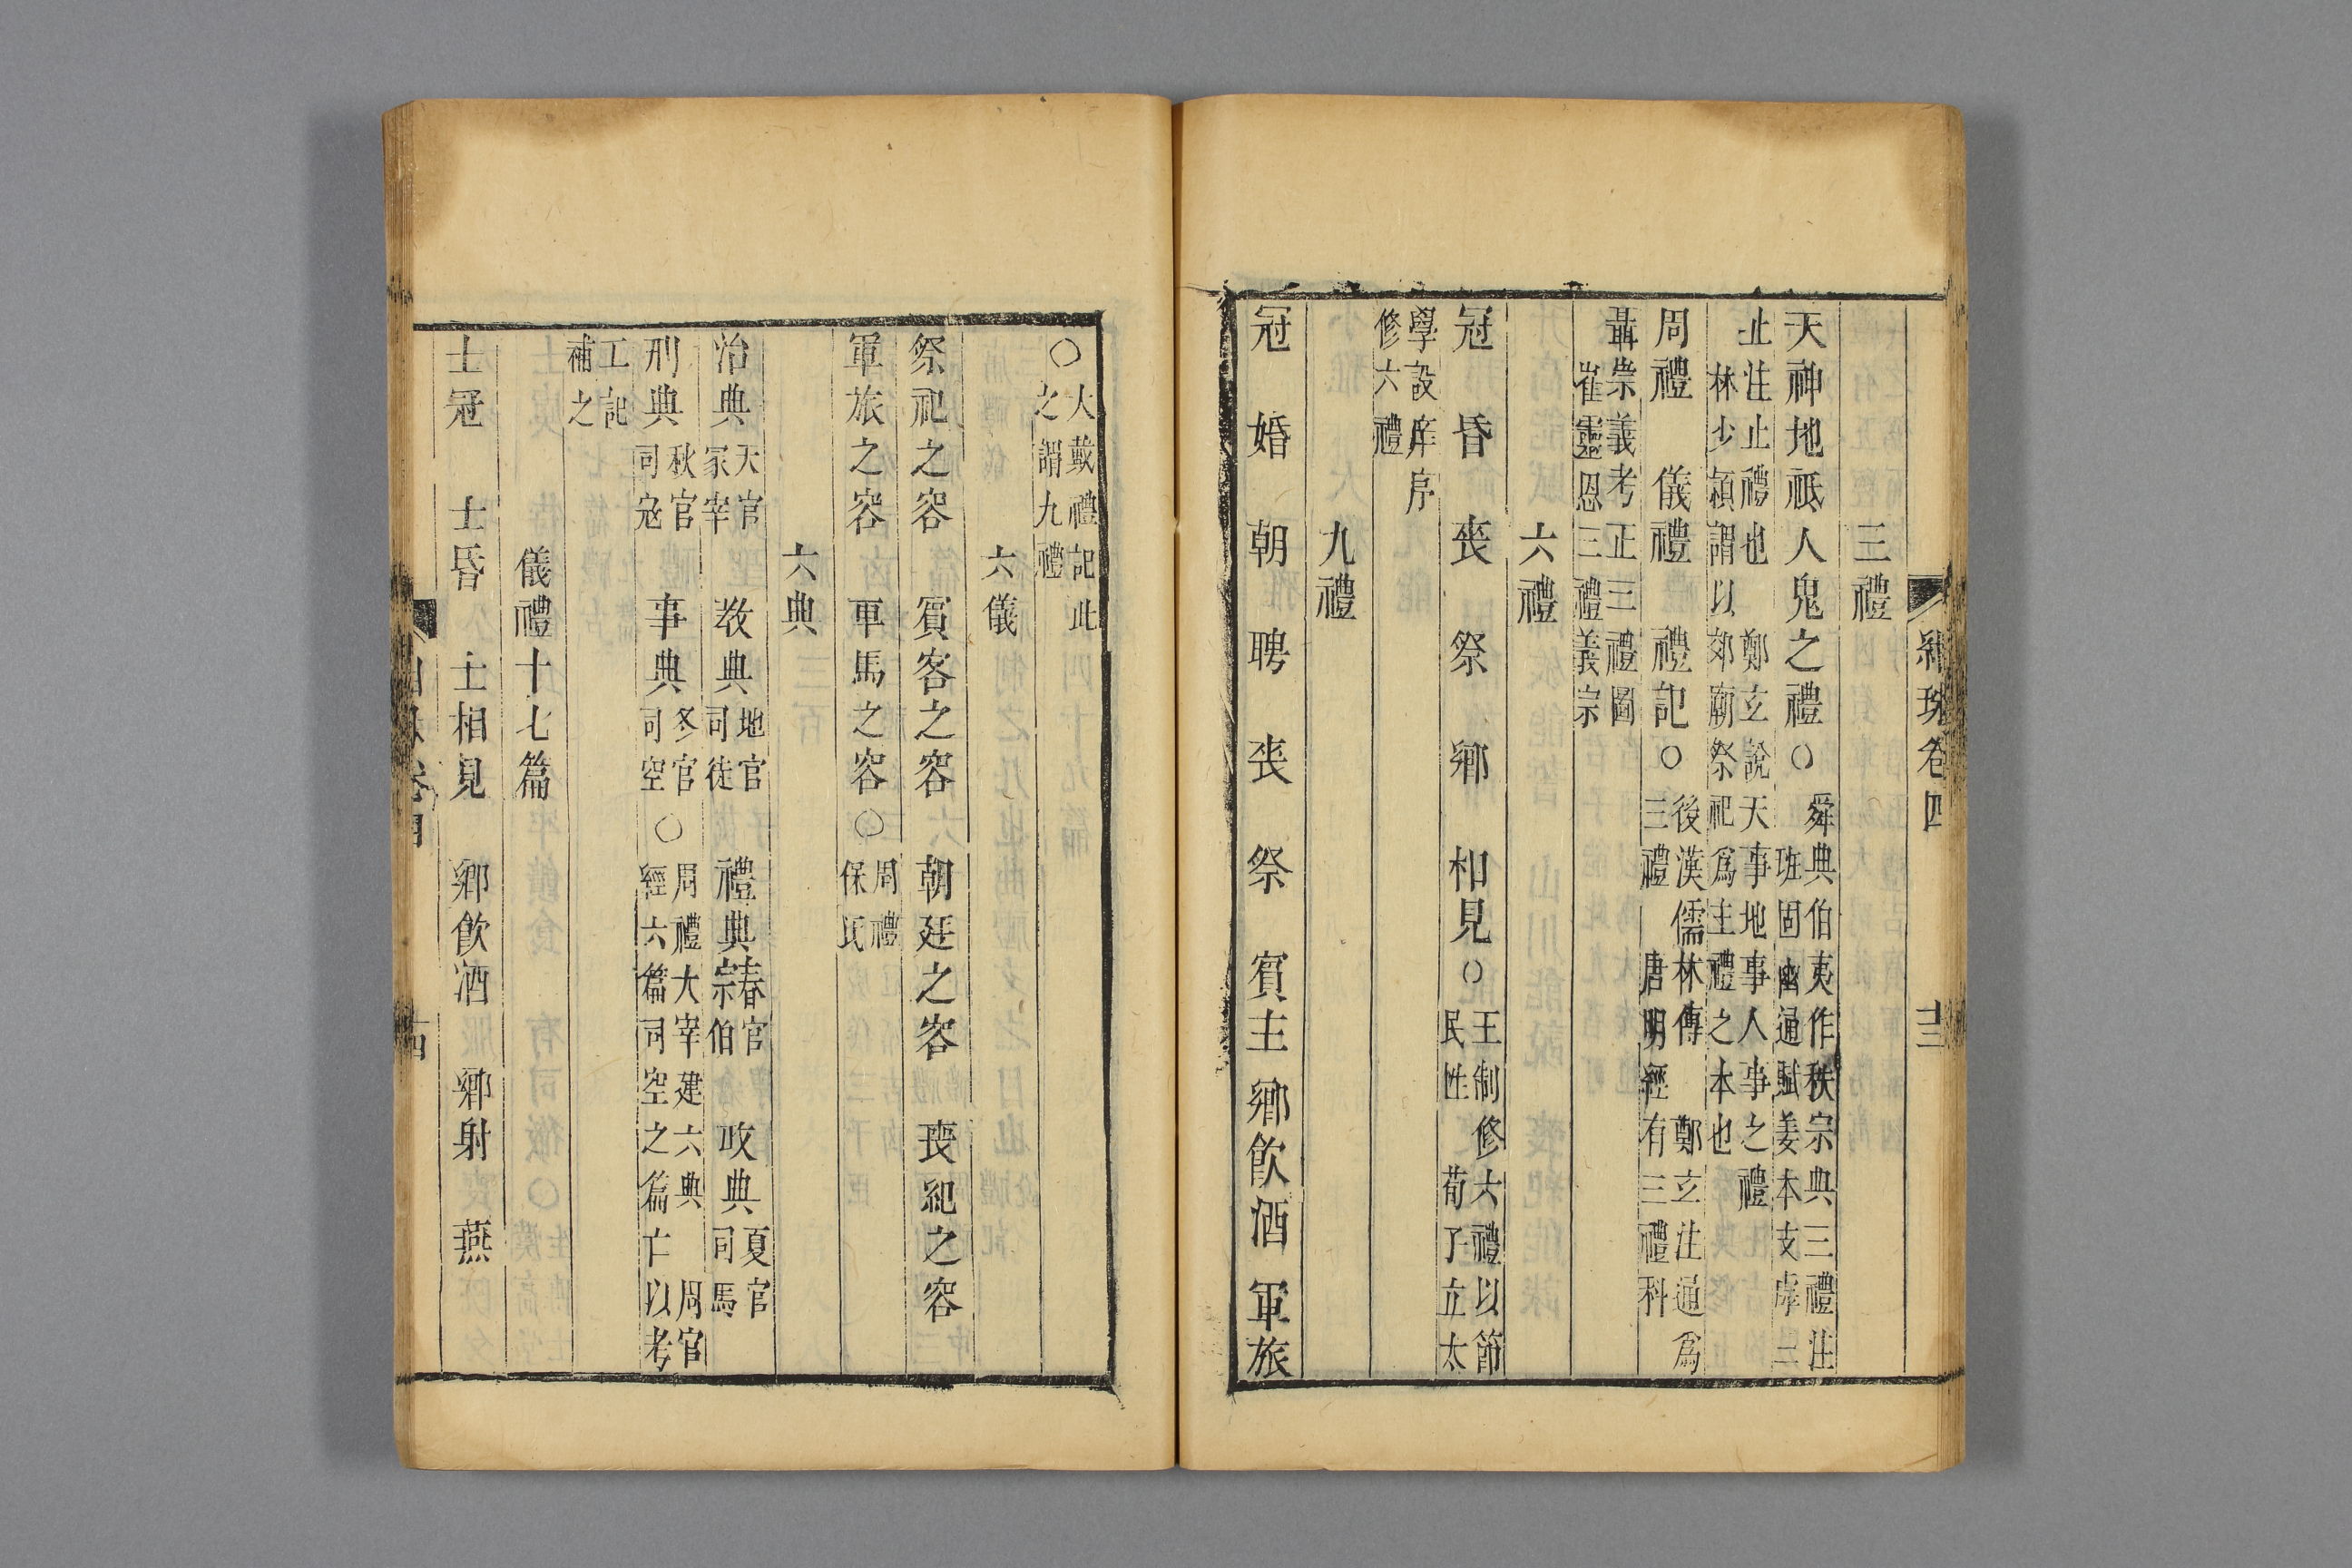 紺珠卷四 十三
三禮
天神地祗人鬼之禮○舜典伯夷作秩宗典三禮注
班固幽通賦姜本支虖三
止注止禮也 鄭玄說天事地事人事之禮
林少頴謂以郊廟祭祀爲主禮之本也
周禮 儀禮 禮記○後漢儒林傳 鄭玄注通爲
三禮 唐明經有三禮科
聶崇義考正三禮圖
崔靈恩三禮義宗
六禮
冠 昏 喪 祭 鄉 相見○王制修六禮以節
民性 荀子立太
學設庠序
修六禮
九禮
冠 婚 朝 聘 喪 祭 賓主 鄉飲酒 軍旅
○大戴禮記此
之謂九禮
六儀
祭祀之容 賓客之容 朝廷之容 喪紀之容
軍旅之容 車馬之容○周禮
保氏
六典
治典天官冢宰 教典地官司徒 禮典春官宗伯 政典夏官司馬
刑典秋官司寇 事典冬官司空○周禮大宰建六典 周官
經六篇司空之篇亡以考
工記
補之
儀禮十七篇
士冠 士昏 士相見 鄉飲酒 鄉射 燕
卷四 十四